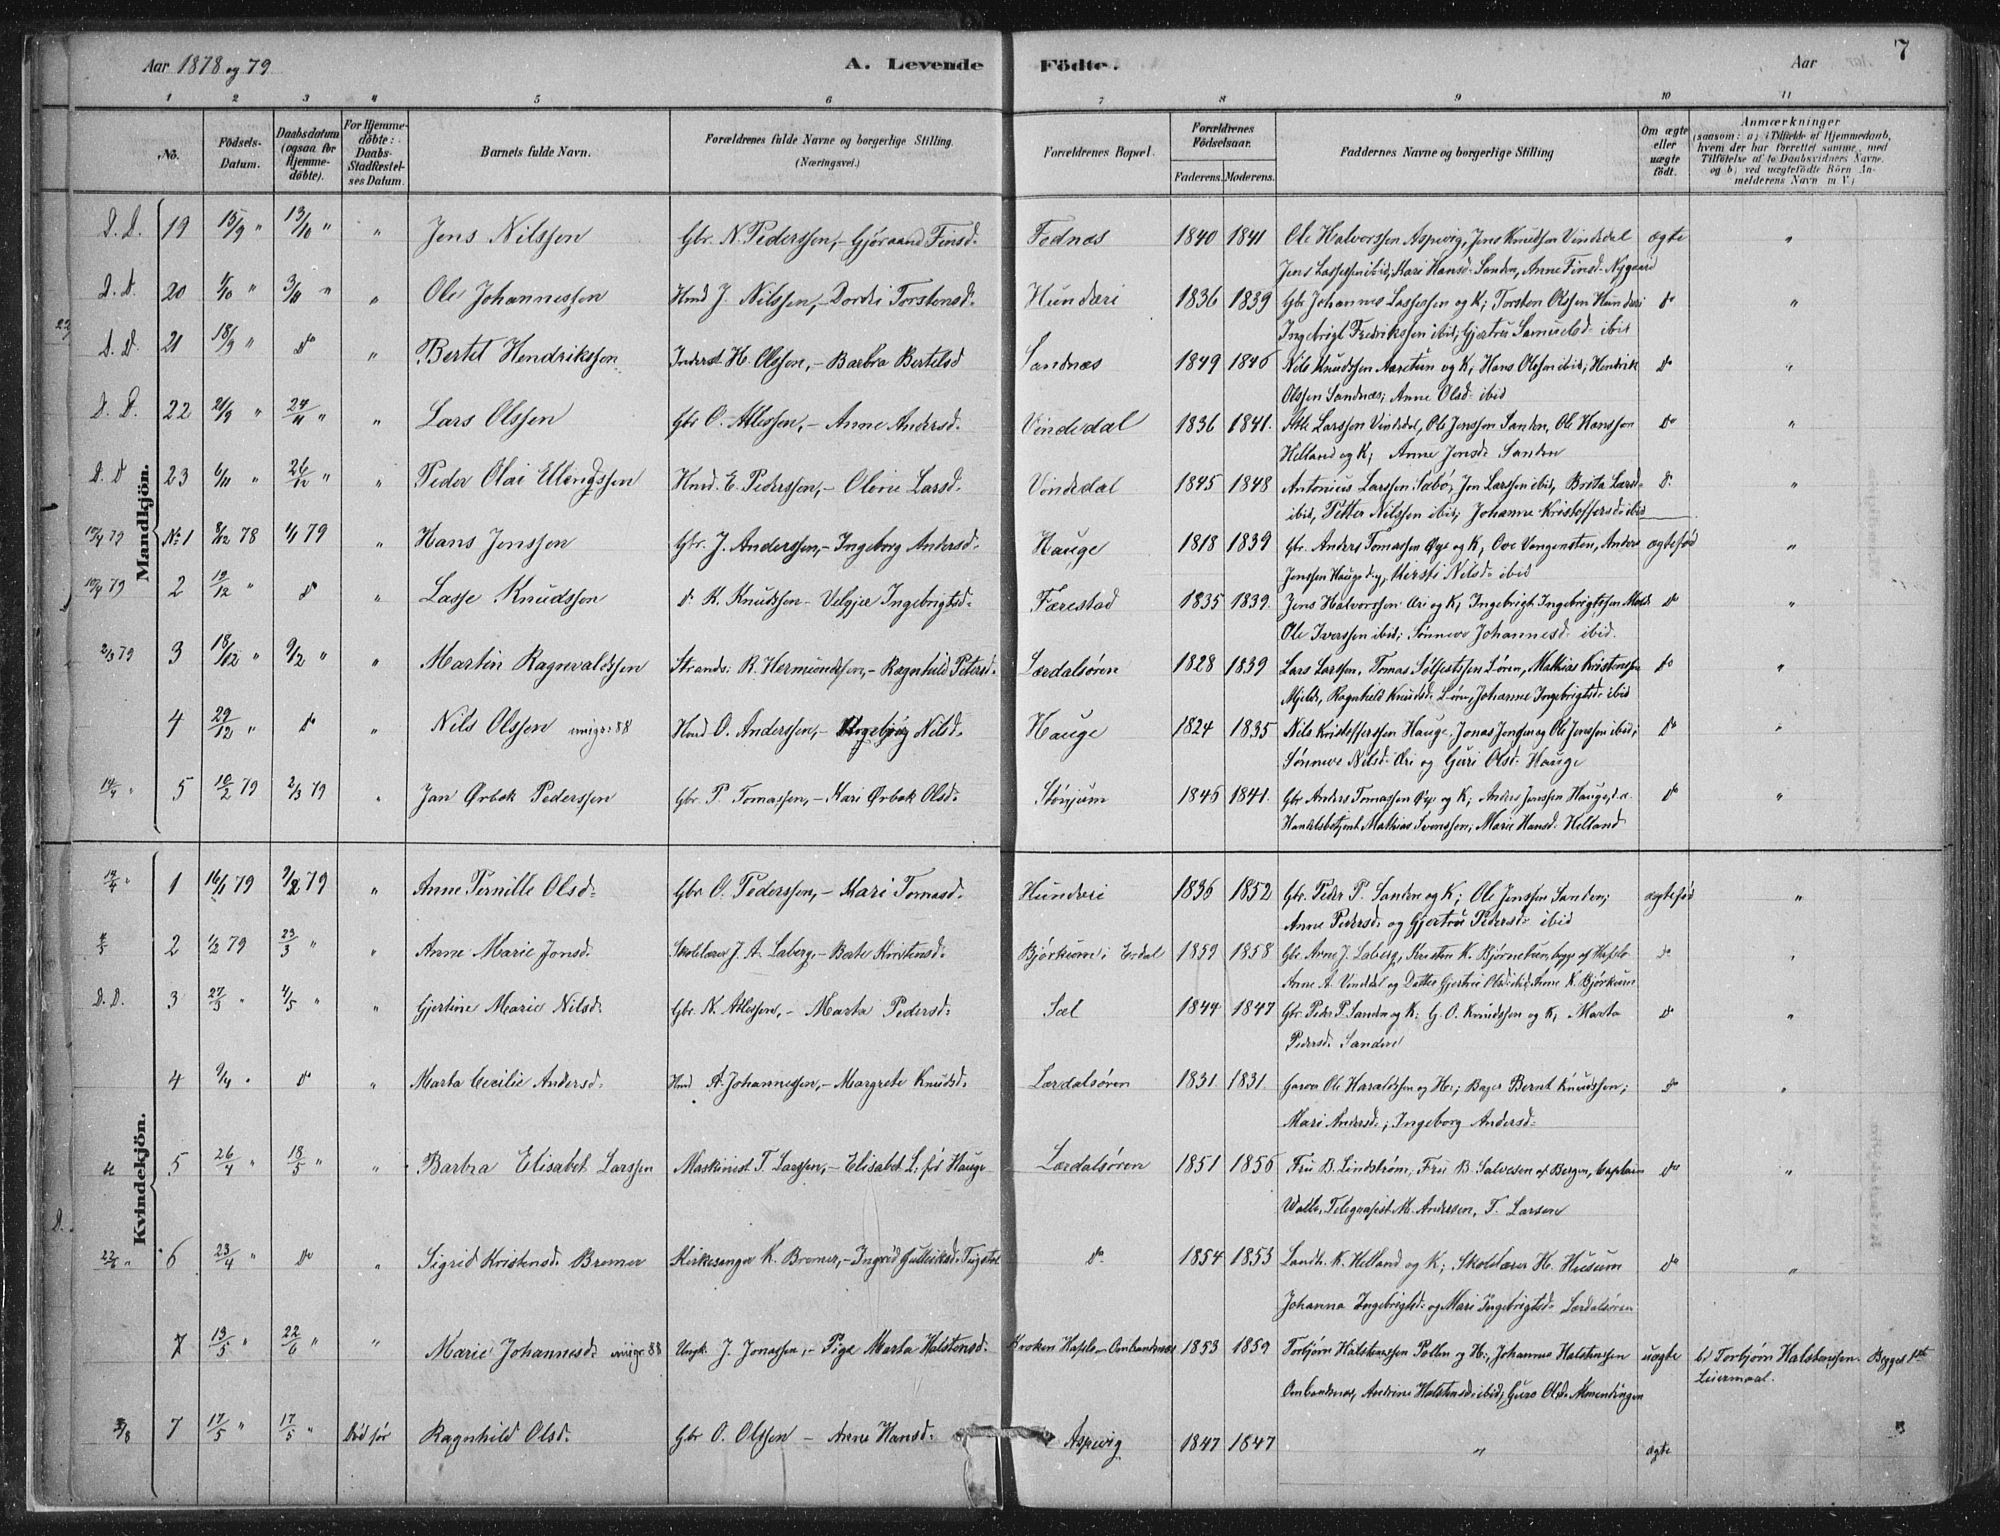 Aar 1878 og 79. A. Levende Födte. Aar 7
1 2 3 4 5 6 7 8 9 10 11
No. Födsels-Datum. Daabsdatum (ogsaa for Hjemme-döbte). For Hjemme-döbte: Daabs-Stadfæstel-ses Datum. Barnets fulde Navn. Forældrenes fulde Navne og borgerlige Stilling. (Næringsvei.) Forældrenes Bopæl. Forældrenes Födselsaar. Faderens. Moderens. Faddernes Navne og borgerlige Stilling Om ægte eller uægte födt. Anmærkninger (saasom: a) i Tilfælde af Hjemmedaab, hvem der har forrettet samme, med Tilföielse af to Daabsvidners Navne. og b) ved uægtefödte Börn An-melderens Navn m. V.)
Mandkjön.
D. D. 19 15/9 " 13/10 " " Jens Nilssen Gbr. N. Pederssen, - Gjøraand Finsd. Fodnæs 1840 1841 Ole Halvorssen Aspevig, Jens Knudsen Vindedal ægte "
Jens Lassessen ibid, Kari Hansd. Sanden, Anne Finsd. Nygaard
D. D. 20 " 3/11 " " Ole Johannessen Hmd J. Nilssen, - Dordi Torstensd. Hundæri 1836 1839 Gbr Johannes Lassessen og K; Torsten Olssen Hundæri do "
Ingebrigt Fredrikssen ibid; Gjertru Samuelsd. ibid
D. D. 21 18/9 " do " Bertel Hendrikssen Inderst H. Olssen, - Barbra Bertelsd Sandnæs 1849 1846 Nils Knudssen Aaretun og K; Hans Olssen ibid, Hendrik do "
Olssen Sandnæs; Anne Olsd. ibid
D. D. 22 21/9 " 24/11 " " Lars Olssen Gbr O. Atlessen, - Anne Andersd. Vindedal 1836 1841. Atle Larssen Vindedal, Ole Jenssen Sanden, Ole Hanssen do "
Helland og K; Anne Jensd. Sanden
D. D 23 6/11 " 26/12 " " Peder Olai Ellingssen Hmd. E. Pederssen, - Oline Larsd. Vindedal 1845 1848 Antonius Larssen Sæbø, Jon Larssen ibid, Brita Larsd. do "
ibid, Petter Nilssen ibid; Johanne Kristoffersd. ibid
10/4 79 No 1 8/12 78 1/1 79 " Hans Jenssen Gbr. J. Anderssen, - Ingeborg Andersd. Hauge 1818 1839 Gbr. Anders Tomassen Øye og K, Ove Vangensten, Anders ægtefød "
Jenssen Hauge, Kirsti Nilsd. ibid
10/4 79 2 19/12 " do " Lasse Knudssen do K. Knudssen - Velgjer Ingebrigtsd. Færestad 1835 1839. Jens Halvorssen Æri og K, Ingebrigt Ingebrigtssen Molde do "
Ole Iverssen ibid; Sønneve Johannesd. ibid.
2/3 79 3 18/12 " 9/2 " " Martin Ragnvaldssen Strands. R. Hermundssen, - Ragnhild Petersd. Lærdalsøren 1828 1839 Lars Larssen, Tomas Solfestssen Løren, Mathias Kristenssen do "
Mjelde, Ragnhild Knudsd. Løren, Johanne Ingebrigtsd. ibid
4 29/12 " do " Nils Olssen emigr: 88 Hmd O. Anderssen, - Ingebjørg Nilsd. Hauge 1824 1835 Nils Kristofferssen Hauge, Jonas Jenssen og Ole Jenssen ibid; do "
Sønneve Nilsd. Æri og Guri Olsd. Hauge
14/4 " 5 10/2 79 2/3 79 " Jan Ørbek Pederssen Gbr. P. Tomassen, - Kari Ørbek Olsd. Stønjum 1845 1841. Gbr. Anders Tomassen Øye og K; Anders Jenssen Hauge, do "
Handelsbetjent Mathias Svenssen; Marie Hansd. Helland
Kvindekjön.
14/4 " 1 16/1 79 9/2 79 " Anne Pernille Olsd. Gbr. O. Pederssen, - Mari Tomasd. Hundæri 1836 1852 Gbr. Peder P. Sanden og K; Ole Jenssen Sanden; ægtefød "
Anne Pedersd. og Gjertru Pedersd. ibid
2 1/2 79 23/3 " " Anne Marie Jonsd. Skolelærer J. A. Laberg - Berte Kristensd. Bjørkum i Erdal 1859 1858 Gbr. Arne J. Laberg, Kristen K. Bjørnetun, begge af Hafslo do "
Anne A. Vindedal og Datter Gjertrue Olsd. ibid, Anne K. Bjørkum
D. D. 3 27/3 " 4/5 " " Gjertine Marie Nilsd. Gbr. N. Atlessen, - Marta Pedersd. Sæl 1844 1847 Gbr. Peder P. Sanden og K: G. O. Knudssen og K, Marta do "
Pedersd. Sanden
4 9/4 " do " Marta Cecilie Andersd. Hmd A. Johannessen, - Margrete Knudsd. Lærdalsøren 1831. 1831. Garver Ole Haraldssen og H; Bager Bernt Knudssen; do "
Mari Andersd., Ingeborg Andersd.
5 26/4 " 18/5 " " Barbra Elisabet Larssen Maskinist T. Larssen, - Elisabet L: fød Hauge Lærdalsøren 1851 1856 Fru B. Lindstrøm, Fru B. Salvesen af Bergen, Captain do "
Walle, Telegrafist M. Andersen, T. Larsen
22/6 " 6 23/4 " do " Sigrid Kristensd. Bremer Kirkesanger K. Bremer, - Ingrid Gulleiksd. do 1854 1853 Landh. K. Helland og K; Skolelærer H. Husum do "
Johanna Ingebrigtsd. og Mari Ingebrigtsd. Lærdalsøren
7 13/5 " 22/6 " " Marie Johannesd. emigr: 88 Ungk. J. Jonassen, - Pige Marta Halstensd. Kroken Hafslo - Ombandnæs 1853 1859 Torbjørn Halstenssen Pollen og H; Johannes Halstenssen uægte b) Torbjørn Halstenssen. Begges 1ste
Ombandnæs, Andrine Halstensd. ibid, Guro Olsd. Almendingen Leiermaal.
7 17/5 " 17/5 " Død før Ragnhild Olsd. Gbr O. Olssen - Anne Hansd. Aspevig 1847 1847 " ægte